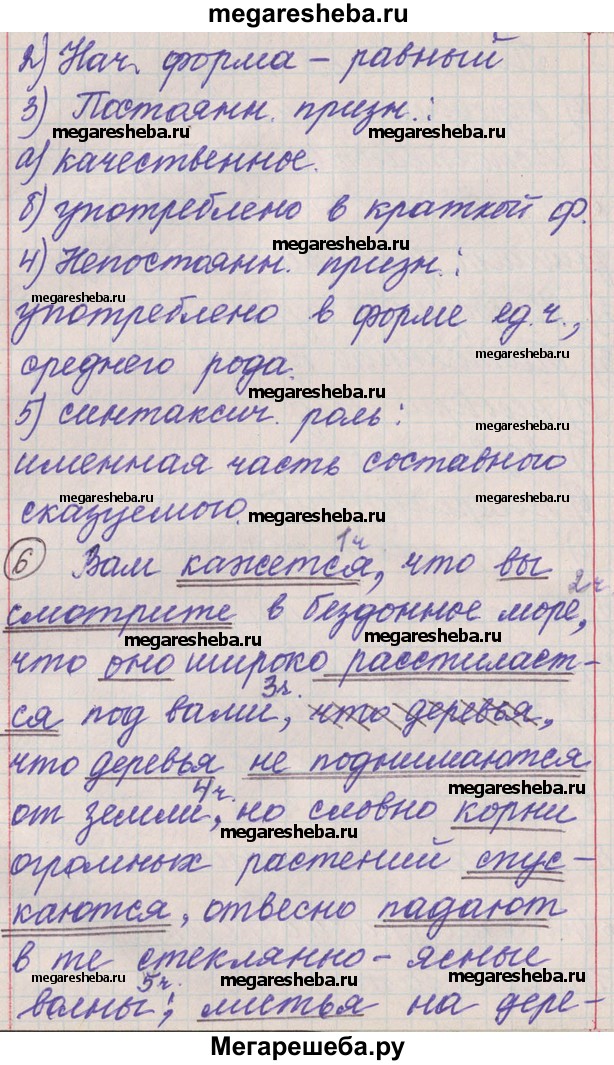 megaresheba.ru
2) Нач. форма – равный
3) Постоянн. призн.:
megaresheba.ru megaresheba.ru
а) качественное.
megaresheba.ru
б) употреблено в краткой ф.
megaresheba.ru
4) Непостоянн. призн.:
megaresheba.ru
употреблено в форме ед.ч.,
megaresheba.ru
среднего рода.
megaresheba.ru
5) синтаксич. роль:
megaresheba.ru
именная часть составного
megaresheba.ru megaresheba.ru
сказуемого.
1ч
6 Вам кажется, что вы
2ч
смотрите в бездонное море,
megaresheba.ru
что оно широко расстилает-
3ч.
ся под вами, что деревья,
что деревья не поднимаются
4ч. megaresheba.ru
от земли, но словно корни
megaresheba.ru
огромных растений спус-
каются, отвесно падают
в те стеклянно-ясные
megaresheba.ru megaresheba.ru megaresheba.ru
5ч.
волны; листья на дере-
Мегарешеба.ру